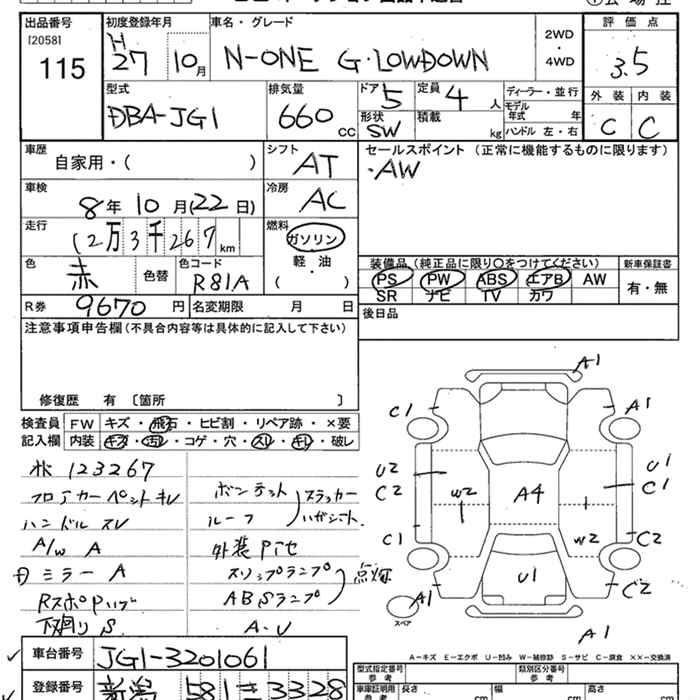 出品番号 [2058] 115
初度登録年月 H 27 10月
車名・グレード N-ONE G・LOWDOWN
2WD・4WD
評価点 3.5
型式 DBA-JG1
排気量 660 CC
ドア 5
定員 4 人
形状 SW
積載 kg
ディーラー・並行
モデル年式 年
ハンドル 左・右
外装 C
内装 C
車歴 自家用・( )
シフト AT
セールスポイント (正常に機能するものに限ります)
・AW
車検 8年10月(22日)
冷房 AC
走行 12万3千267km
燃料 ガソリン 軽・油 ( )
色 赤 色替
色コード R81A
装備品 (純正品に限り○をつけてください)
PS PW ABS エアB AW
SR ナビ TV カワ
新車保証書 有・無
R券 9670円
名変期限 月 日
後日品
注意事項申告欄(不具合内容等は具体的に記入して下さい)
修復歴 有 〔箇所 〕
検査員記入欄
FW キズ・飛石・ヒビ割・リペア跡・×要
内装 キズ・汚レ・コゲ・穴・スレ・キレ・破レ
123267
フロアカーペットキレ
ハンドルスレ
A/W A
ミラーA
下廻りS
ボンネット
ルーフ
ステッカーハガシ
外装
スリップランプ
ABSランプ
点灯
A・U
A1
C1
A1
U2
C2
W2
A4
U1
C1
C1
W2
C2
U1
C2
A1
スペア
A1
A-キズ E-エクボ U-凹み W-補修跡 S-サビ C-腐食 ××-交換済
車台番号 JG1-3201061
登録番号 新潟 581 き 3328
型式指定番号 参考
類別区分番号 参考
車庫証明用 参考 長さ cm 幅 cm 高さ cm